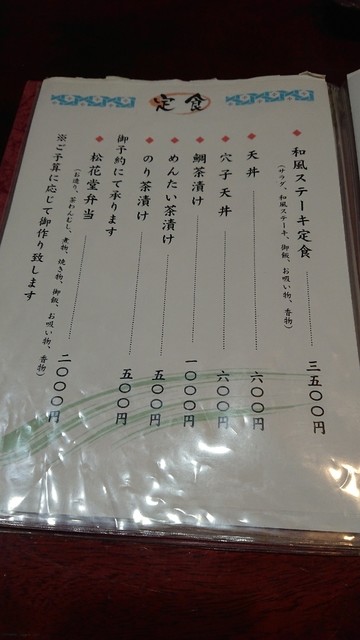 定食
和風ステーキ定食 三五〇〇円
(サラダ、和風ステーキ、御飯、お吸い物、香物)
天丼 六〇〇円
穴子天丼 六〇〇円
鯛茶漬け 一〇〇〇円
めんたい茶漬け 五〇〇円
のり茶漬け 五〇〇円
御予約にて承ります
松花堂弁当 二〇〇〇円
(お造り、茶わんむし、煮物、焼き物、御飯、お吸い物、香物)
※ご予算に応じて御作り致します